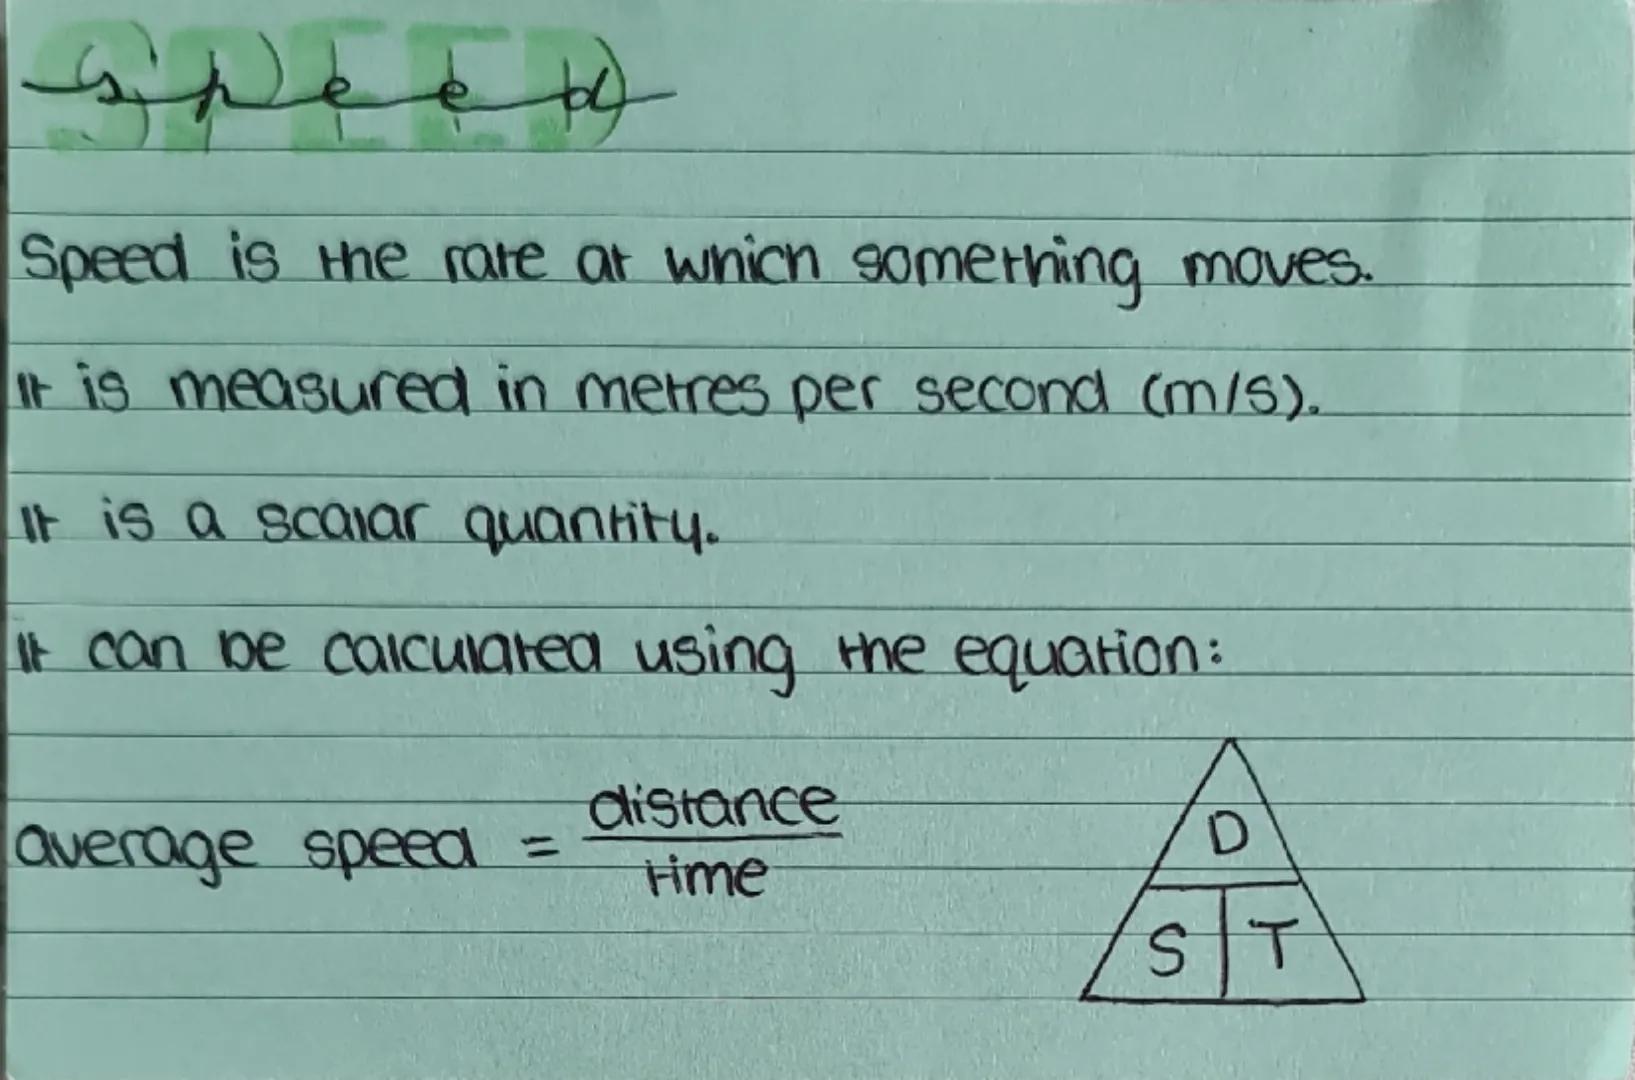 SPEED
speed
Speed is the rate at which something moves.
It is measured in metres per second (m/s).
It is a scalar quantity.
It can be calculated using the equation:
average speed = distance
time
D
S T